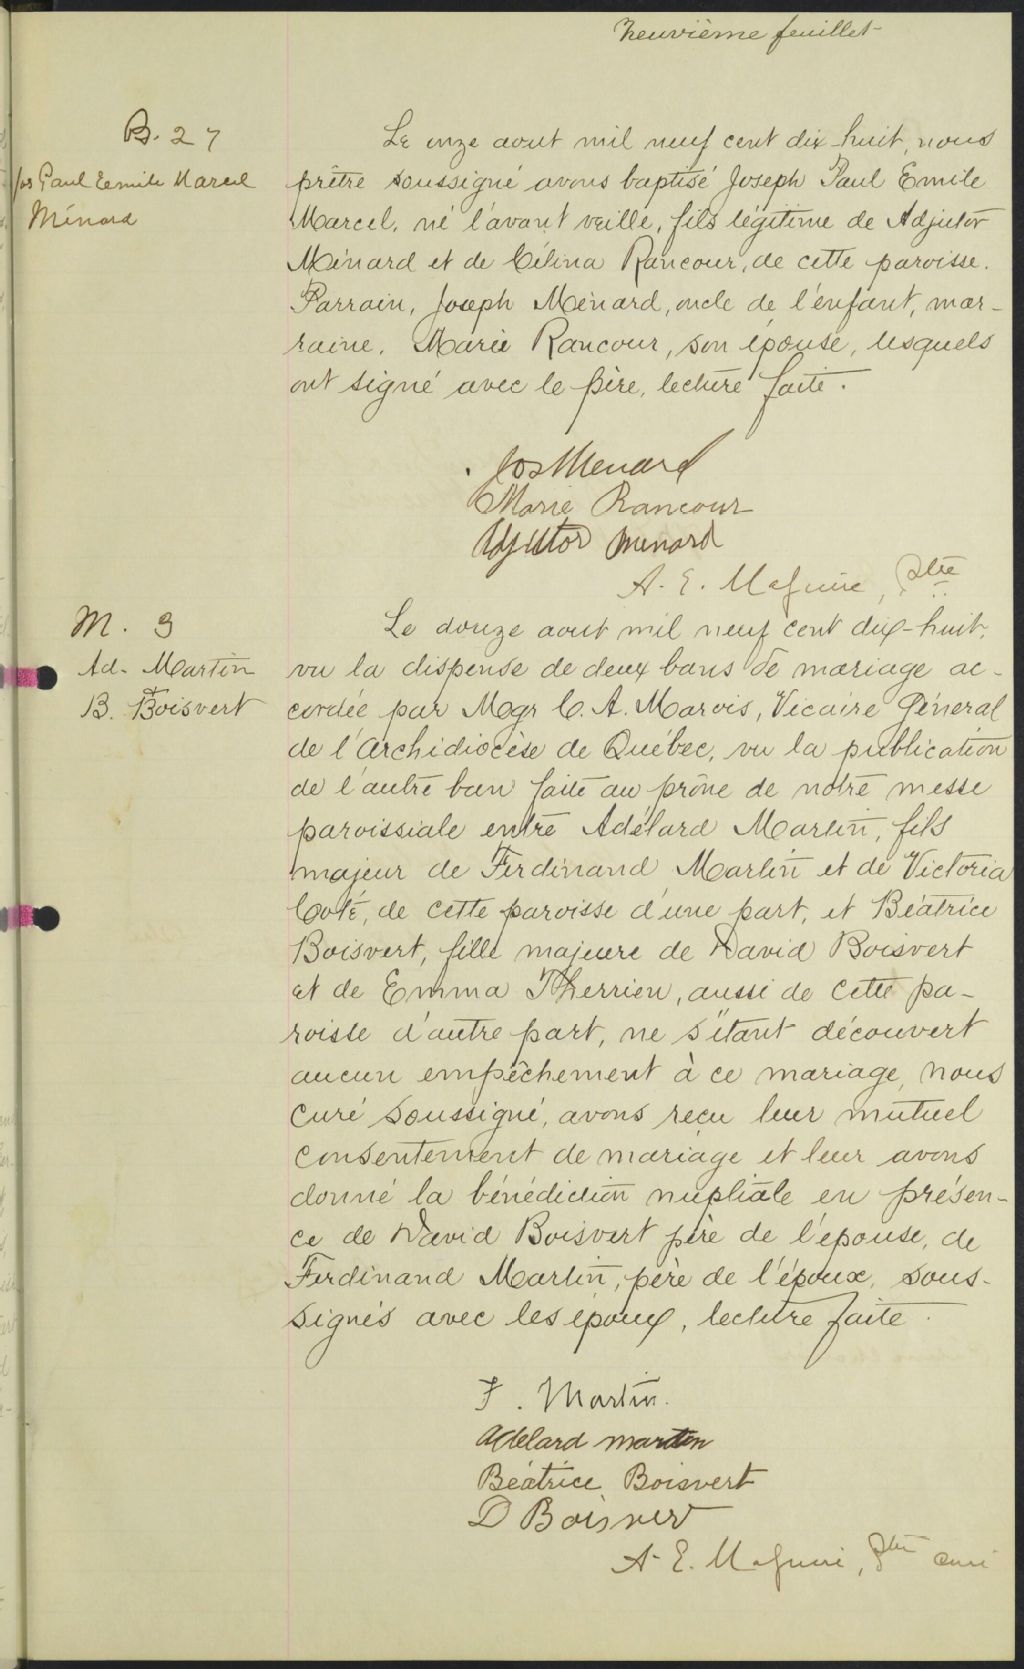 Neuvième feuillet
B. 27
Jos Paul Eemile Marcel
Ménard
Le onze aout mil neuf cent dix huit, nous
prêtre soussigné avons baptisé Joseph Paul Emile
Marcel, né l'avant veille, fils légitime de Adjutor
Ménard et de Célina Rancour, de cette paroisse.
Parrain, Joseph Ménard, oncle de l'enfant, mar-
raine, Marie Rancour, son épouse, lesquels
ont signé avec le père, lecture faite.
Jos Menard
Marie Rancour
Adjutor Menard
A. E. Maguire, Ptre
M. 3
Ad. Martin
B. Boisvert
Le douze aout mil neuf cent dix-huit,
vu la dispense de deux bans de mariage ac-
cordée par Mgr C. A. Marois, Vicaire Général
de l'Archidiocèse de Québec, vu la publication
de l'autre ban faite au prône de notre messe
paroissiale entre Adélard Martin, fils
majeur de Ferdinand Martin et de Victoria
Coté, de cette paroisse d'une part, et Béatrice
Boisvert, fille majeure de David Boisvert
et de Emma Therrien, aussi de cette pa-
roisse d'autre part, ne s'étant découvert
aucun empêchement à ce mariage, nous
curé soussigné, avons reçu leur mutuel
consentement de mariage et leur avons
donné la bénédiction nuptiale en présen-
ce de David Boisvert père de l'épouse, de
Ferdinand Martin, père de l'époux, sous-
signés avec les époux, lecture faite.
F. Martin.
Adelard Martin
Béatrice Boisvert
D Boisvert
A. E. Maguire, Ptre curé